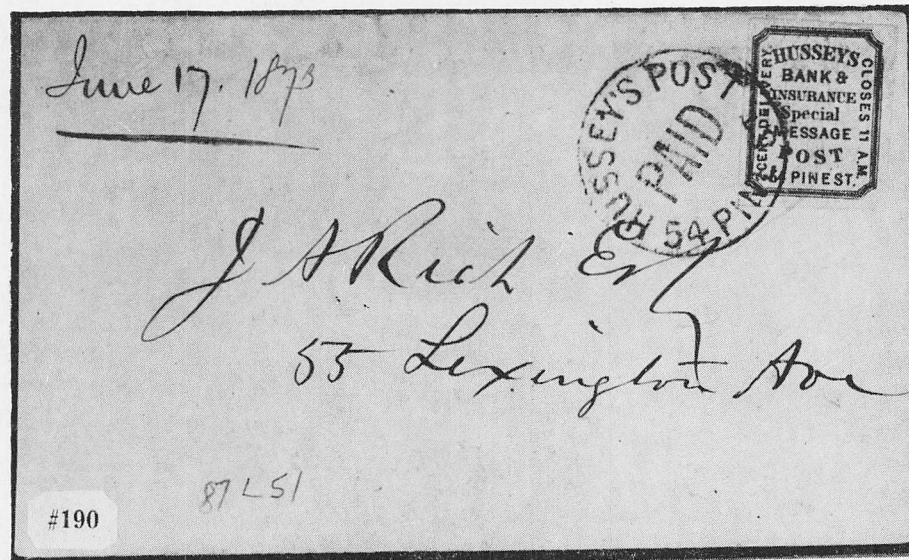 June 17. 1873
HUSSEY'S POST
PAID
54 PINE ST.
HUSSEY'S
BANK &
INSURANCE
Special
MESSAGE
POST
54 PINE ST.
CENT DELIVERY
CLOSES 11 A.M.
J A Rich Esq
55 Lexington Ave
87L51
#190